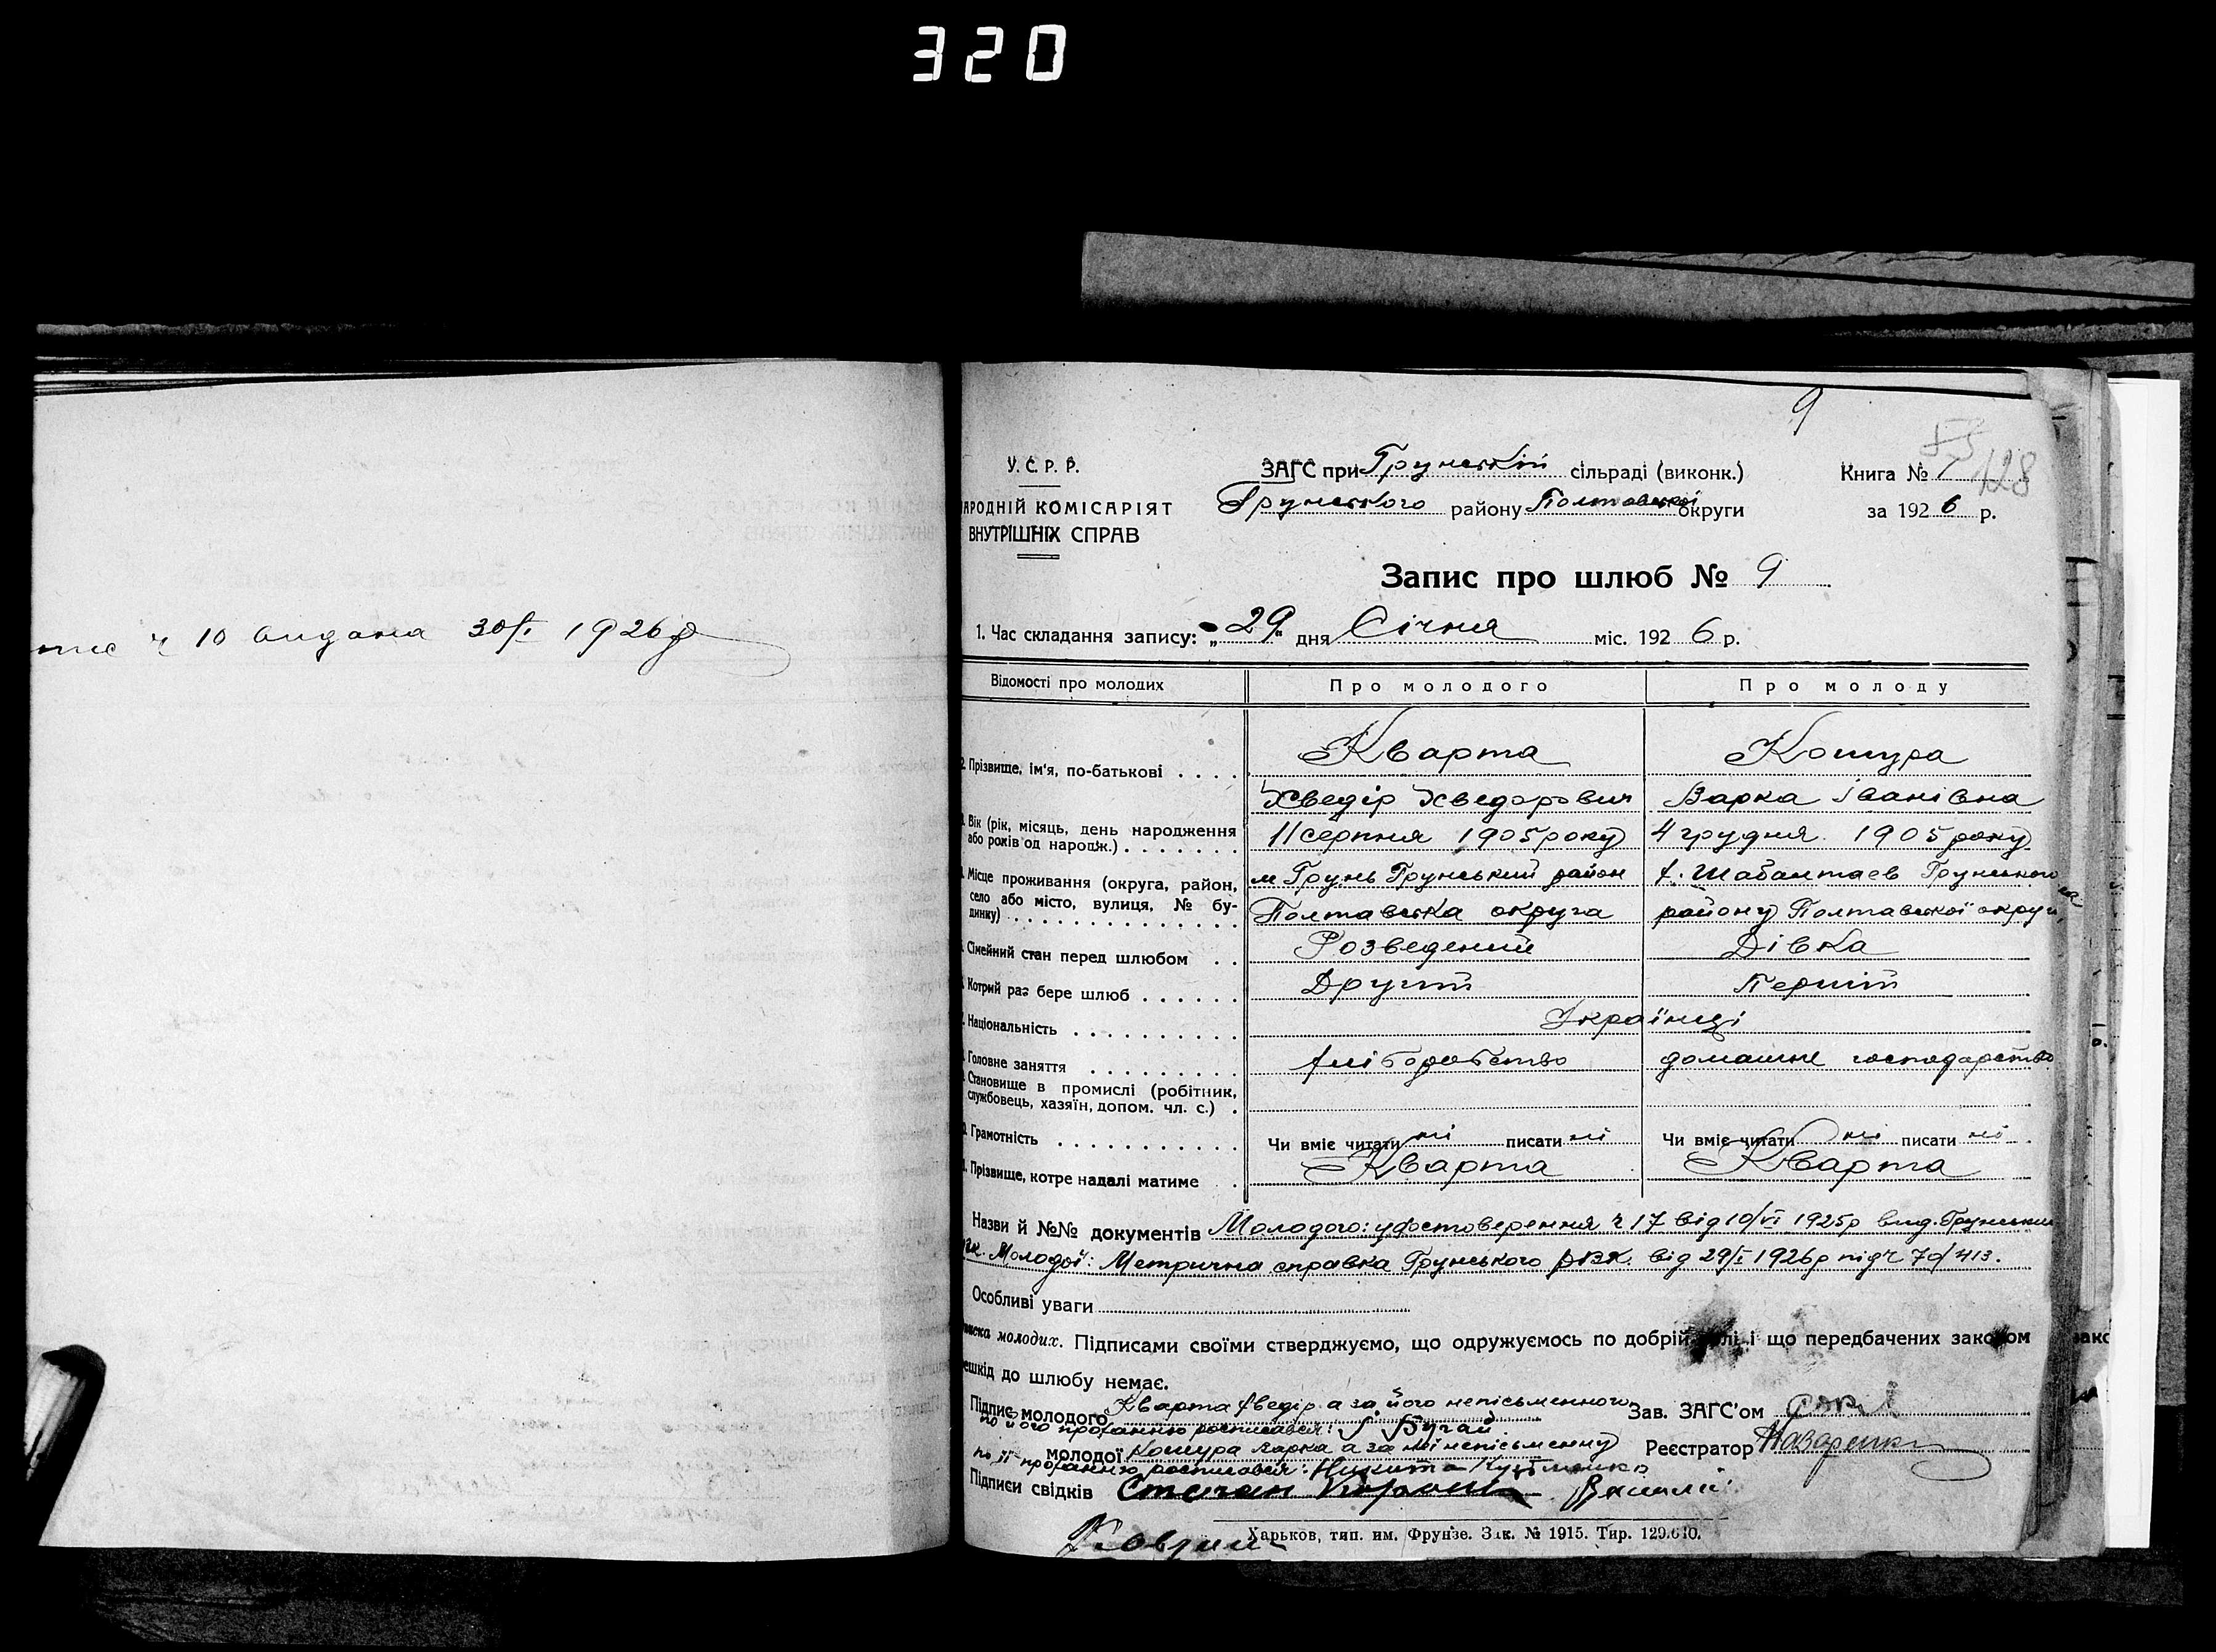 320
9
128
У. С. Р. Р.
АРОДНІЙ КОМІСАРІЯТ
ВНУТРІШНІХ СПРАВ
ЗАГС при Грунській сільраді (виконк.)
Грунського району Полтавської округи
Книга № 1
за 1926 р.
Запис про шлюб № 9
1. Час складання запису: „29" дня Січня міс. 1926 р.
ч 10 видана 30/I 1926 р
Відомості про молодих Про молодого Про молоду
2. Прізвище, ім'я, по-батькові . . . . Кварта Кошура
Хведір Хведорович Варка Іванівна
Вік (рік, місяць, день народження або років од народж.) . . . . . . . 11 серпня 1905 року 4 грудня 1905 року
Місце проживання (округа, район, м Грунь Грунський район х. Шабалтаєв Грунського
село або місто, вулиця, № будинку) . . . . . . . . . . . . . Полтавська округа району Полтавської округи
Сімейний стан перед шлюбом . . Розведений Дівка
Котрий раз бере шлюб . . . . . . Другий Перший
Національність . . . . . . . . . . Українці
Головне заняття . . . . . . . . . хліборобство домашнє господарство
Становище в промислі (робітник,
службовець, хазяїн, допом. чл. с.) .
Грамотність . . . . . . . . . . . Чи вміє читати ні писати ні Чи вміє читати ні писати ні
Прізвище, котре надалі матиме . Кварта Кварта
Назви й №№ документів Молодого: удостоверення ч 17 від 10/VI 1925 р вид. Грунським
Молодої: Метрична справка Грунського РВК. від 29/I 1926 р під ч 70/413.
Особливі уваги
иска молодих. Підписами своїми стверджуємо, що одружуємось по добрій волі і що передбачених законом
ешкід до шлюбу немає.
Підпис молодого Кварта Хведір а за його неписьменного
по його проханню росписався: Бугай
Зав. ЗАГС'ом
молодої Кошура Варка а за неї неписьменну
Реєстратор Назаренко
по її проханню росписався: Никита Кузьменко
Підписи свідків Степан Василь
Харьков, тип. им. Фрунзе. Зак. № 1915. Тир. 129.610.